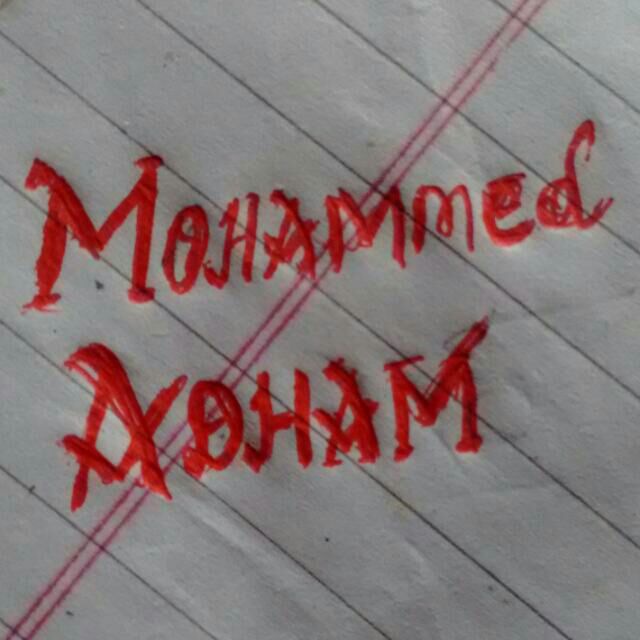 MOHAMMED
ADHAM